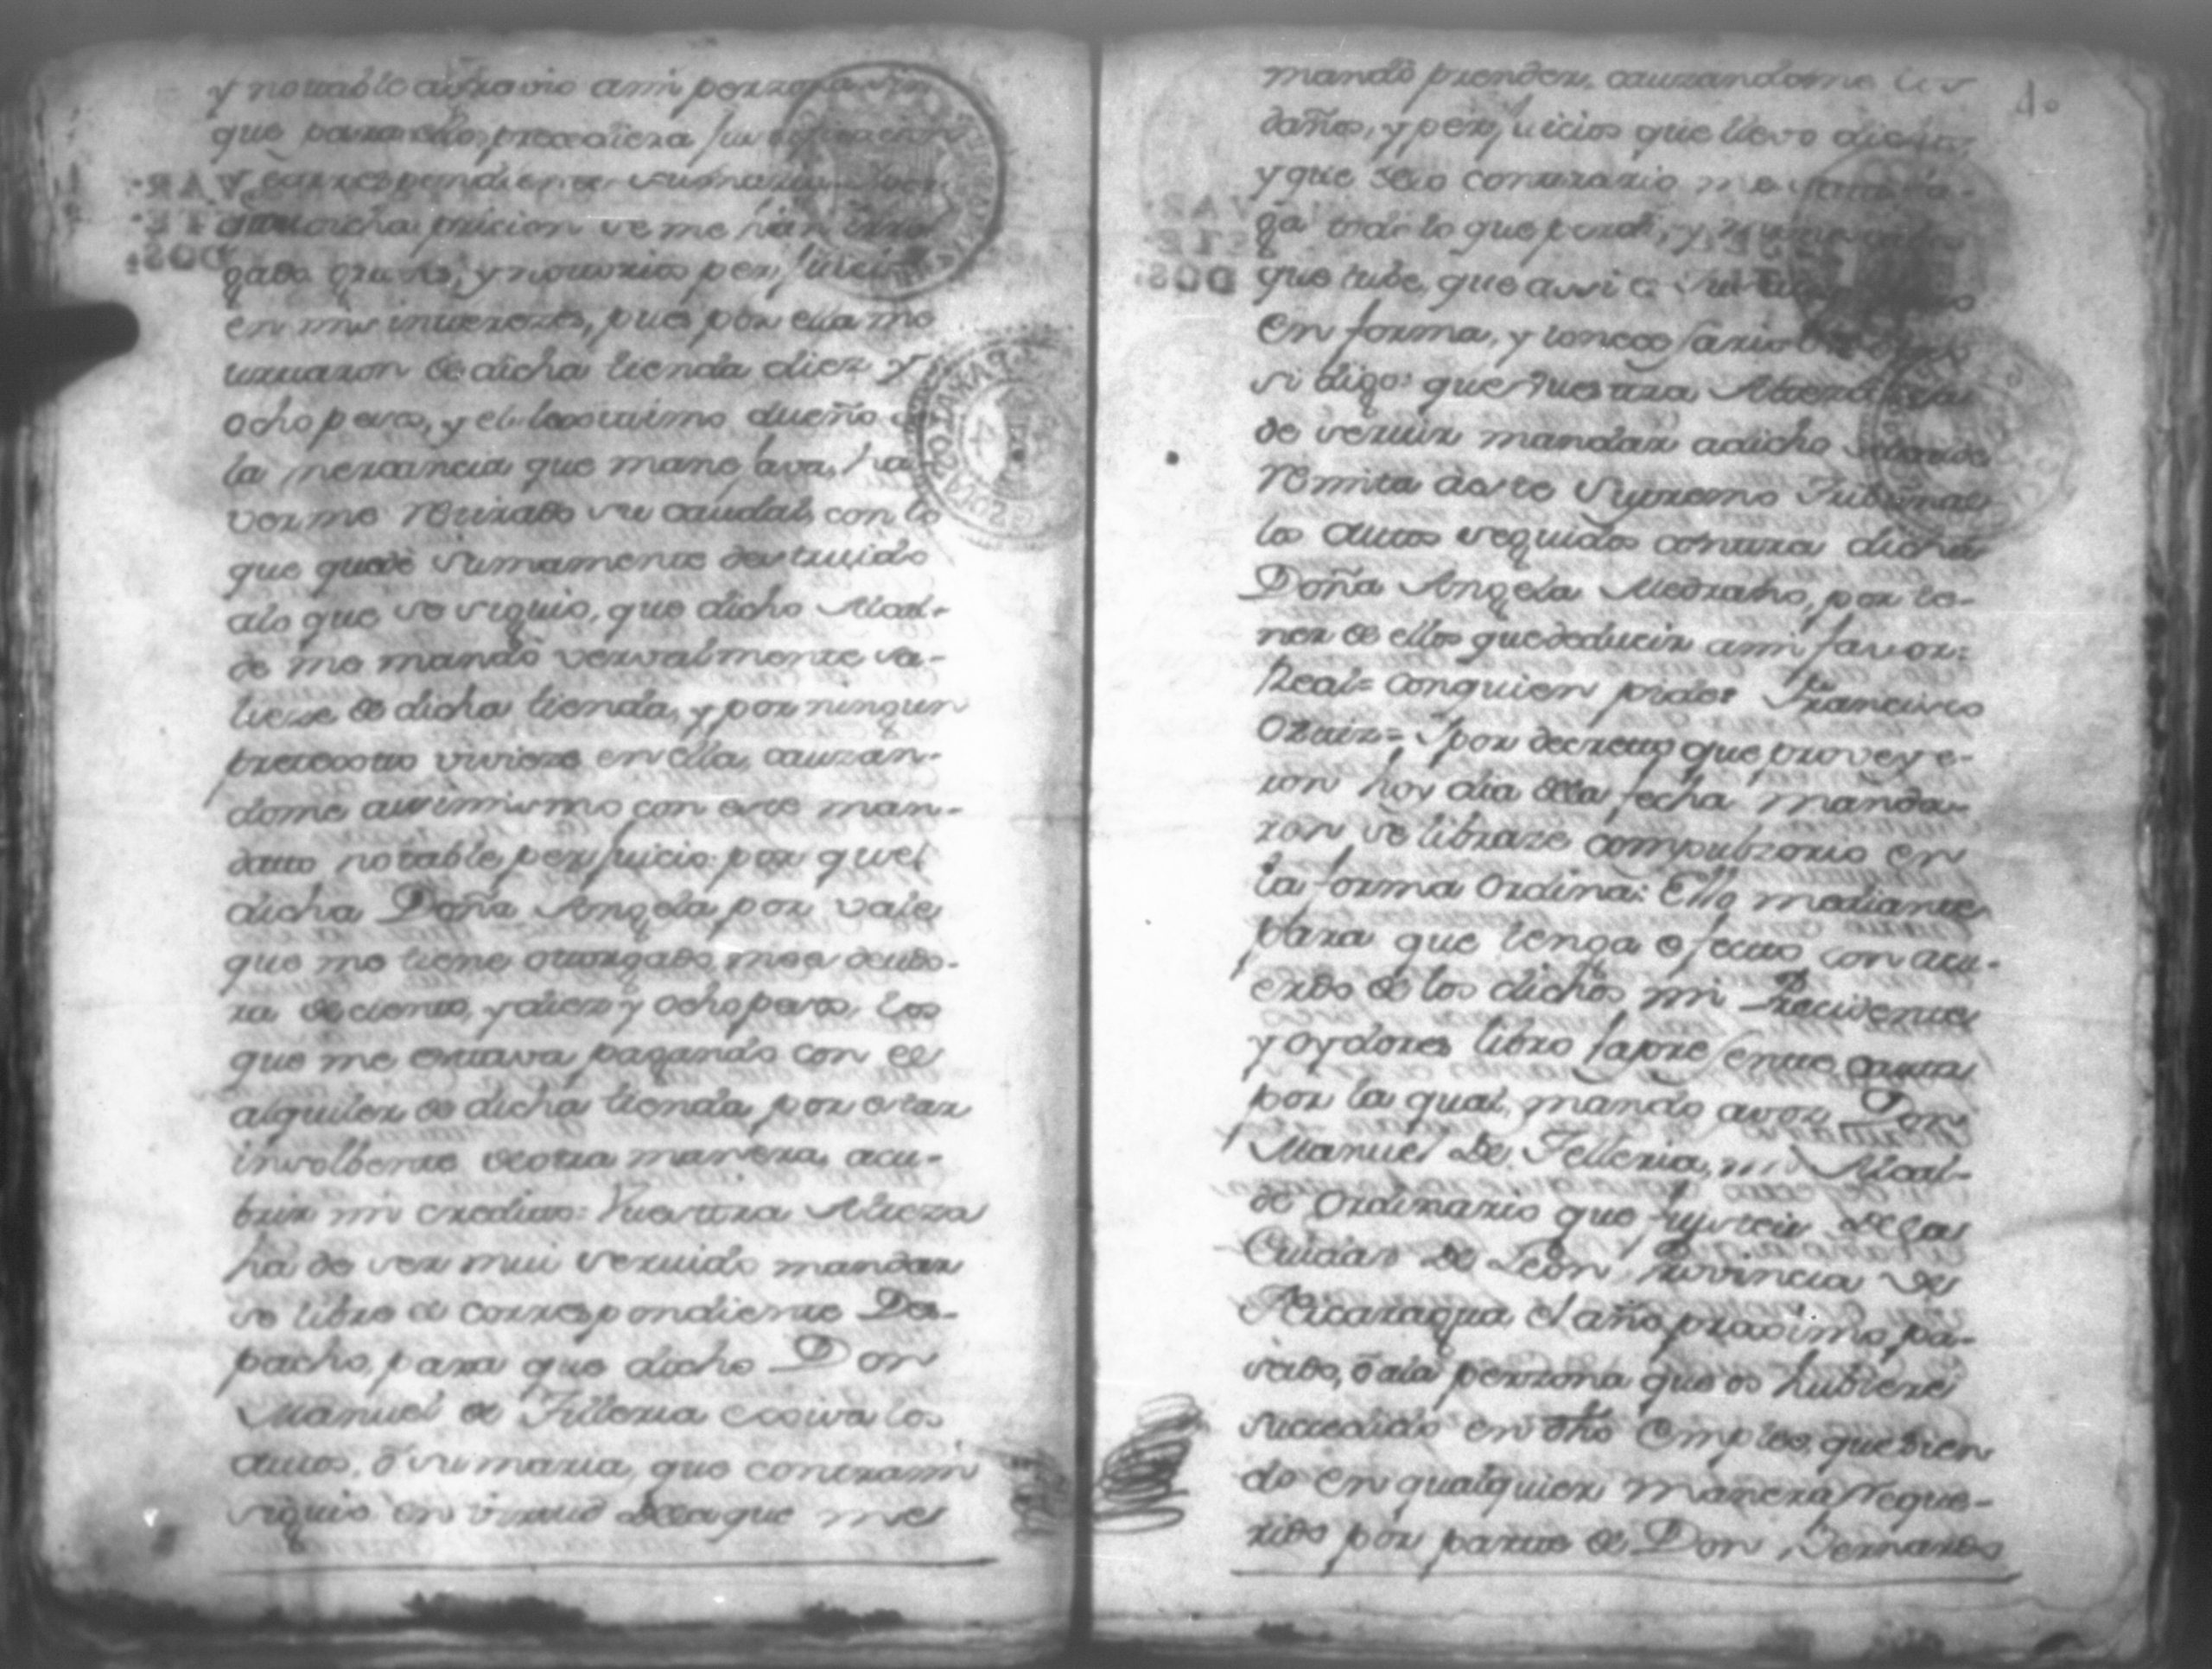 y notable agravio ami perzona sin
que para ello, precediera
correspondiente sumaria
dicha pricion se me han irro
gado graves, y notorios perjuicios
en mis intereses, pues por ella me
quitaron de dicha tienda diez y
ocho pesos, y el lexitimo dueño de
la mercancia que manejava, ha
verme retirado su caudal, con lo
que quede sumamente destruido
alo que se siguio, que dicho Alcal-
de me mandò vervalmente sa-
liesse de dicha tienda, y por ningun
pretecsto viviese en ella, cauzan-
dome assimismo con este man-
dato notable perjuicio: por que
dicha Doña Angela por vale
que me tiene otorgado, mees deudo-
ra de ciento, y diez y ocho pesos, los
que me estava pagando con el
alquiler de dicha tienda, por estar
insolbente deotra manera, acu-
brir mi credito: Vuestra Alteza
ha de ser mui servido mandar
se libre el correspondiente Des-
pacho, para que dicho Don
Manuel de Tilleria ecsiva los
autos, ô sumaria, que contrami
siguiò en virtud delaque me
40
mandò prender, cauzandome los
daños, y perjuicios que llevo dichos,
y que delo contrario me satisfa-
ga todo lo que perdi, y
que tube, que assi es
en forma, y lonecesario
si digo: que Vuestra Alteza
de servir mandar adicho Alcalde
remita aeste Supremo Tribunal
los autos seguidos contra dicha
Doña Angela Medrano, por te-
ner de ellos quededucir ami favor:
Real= conquien pido= Francisco
Ortiz= Ipor decretto que proveye-
ron hoy dia dela fecha manda-
ron se librase compulsorio en
la forma Ordina: Ello mediante
para que tenga efecto con acu-
erdo de los dichos mi Precidente
y oydores libro lapresente carta
por la qual, mando avos, Don
Manuel De Telleria, mi Alcal-
de Ordinario que fuisteis dela
Ciudad de Leon Provincia de
Nicaragua el año procsimo, pa-
sado, ô ala perzona que os hubiere
succedido en dho Empleo, que sien
do en qualquier manera reque-
rido por parte de Don Bernardo